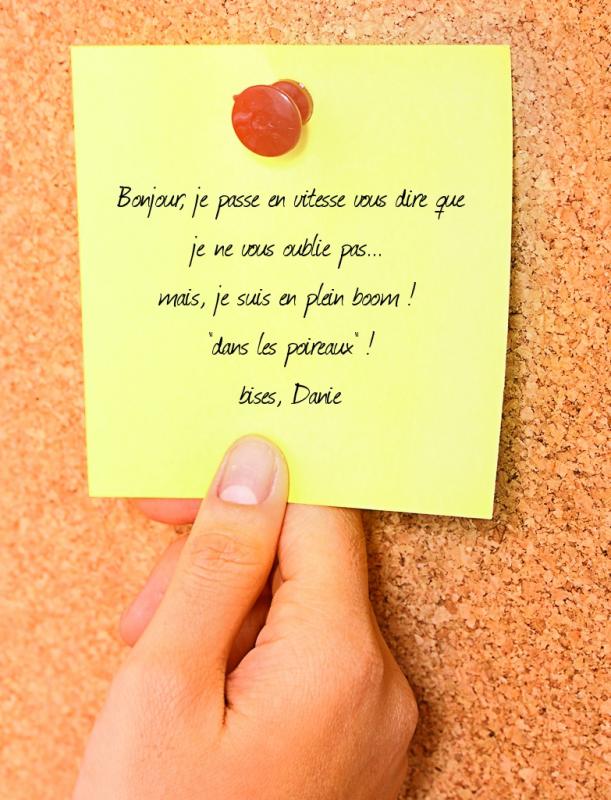 Bonjour, je passe en vitesse vous dire que
je ne vous oublie pas...
mais, je suis en plein boom !
"dans les poireaux" !
bises, Danie